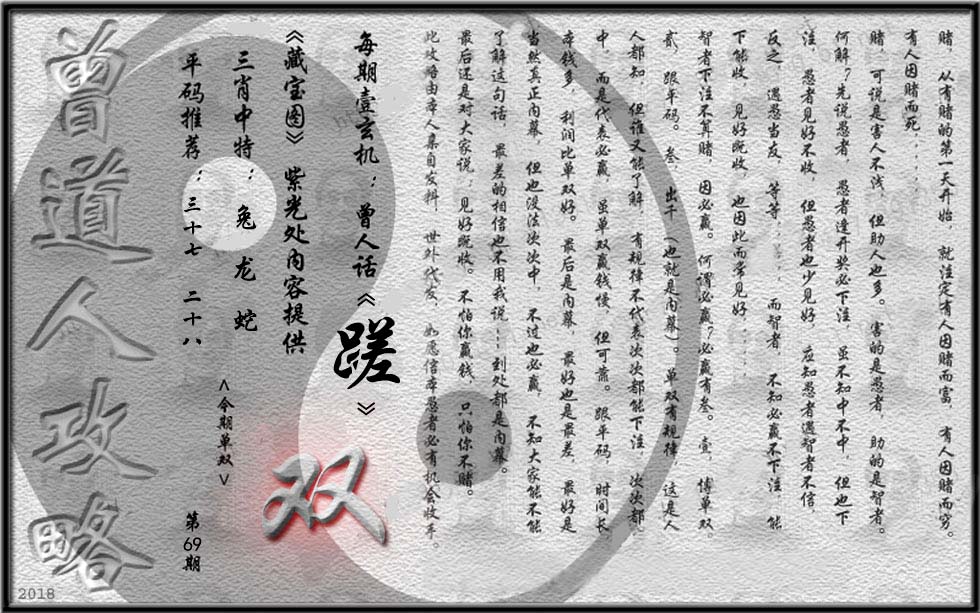 赌，从有赌的第一天开始，就注定有人因赌而富，有人因赌而穷。
有人因赌而死，．．．．．
赌，可说是害人不浅，但助人也多。害的是愚者，助的是智者。
何解？先说愚者，愚者逢开奖必下注，虽不知中不中，但也下
注，愚者见好不收，但愚者也少见好，应知愚者遇智者不信，
反之，遇愚当友，等等．．．．．．而智者，不知必赢不下注，能
下能收，见好既收，也因此而常见好．．．．．
智者下注不算赌，因必赢。何谓必赢？必赢有叁。壹，博单双，
贰，跟平码。叁，出千（也就是内幕）。单双有规律，这是人
人都知，但谁又能了解，有规律不代表次次都能下注，次次都
中，而是代表必赢，虽单双赢钱慢，但可靠。跟平码，时间长，
本钱多，利润比单双好。最后是内幕，最好也是最差，最好是
当然真正内幕，但也没法次次中，不过也必赢，不知大家能不能
了解这句话，最差的相信也不用我说……到处都是内幕。
最后还是对大家说：见好既收。不怕你赢钱，只怕你不赌。
此攻略由本人集自发料，世外代发，如愿信本愚者必有机会收手。
每期壹玄机：曾人话《蹉》
《藏宝图》紫光处内容提供
三肖中特：兔 龙 蛇
平码推荐：三十七 二十八
<今期单双>
双
第69期
曾道人攻略
2018